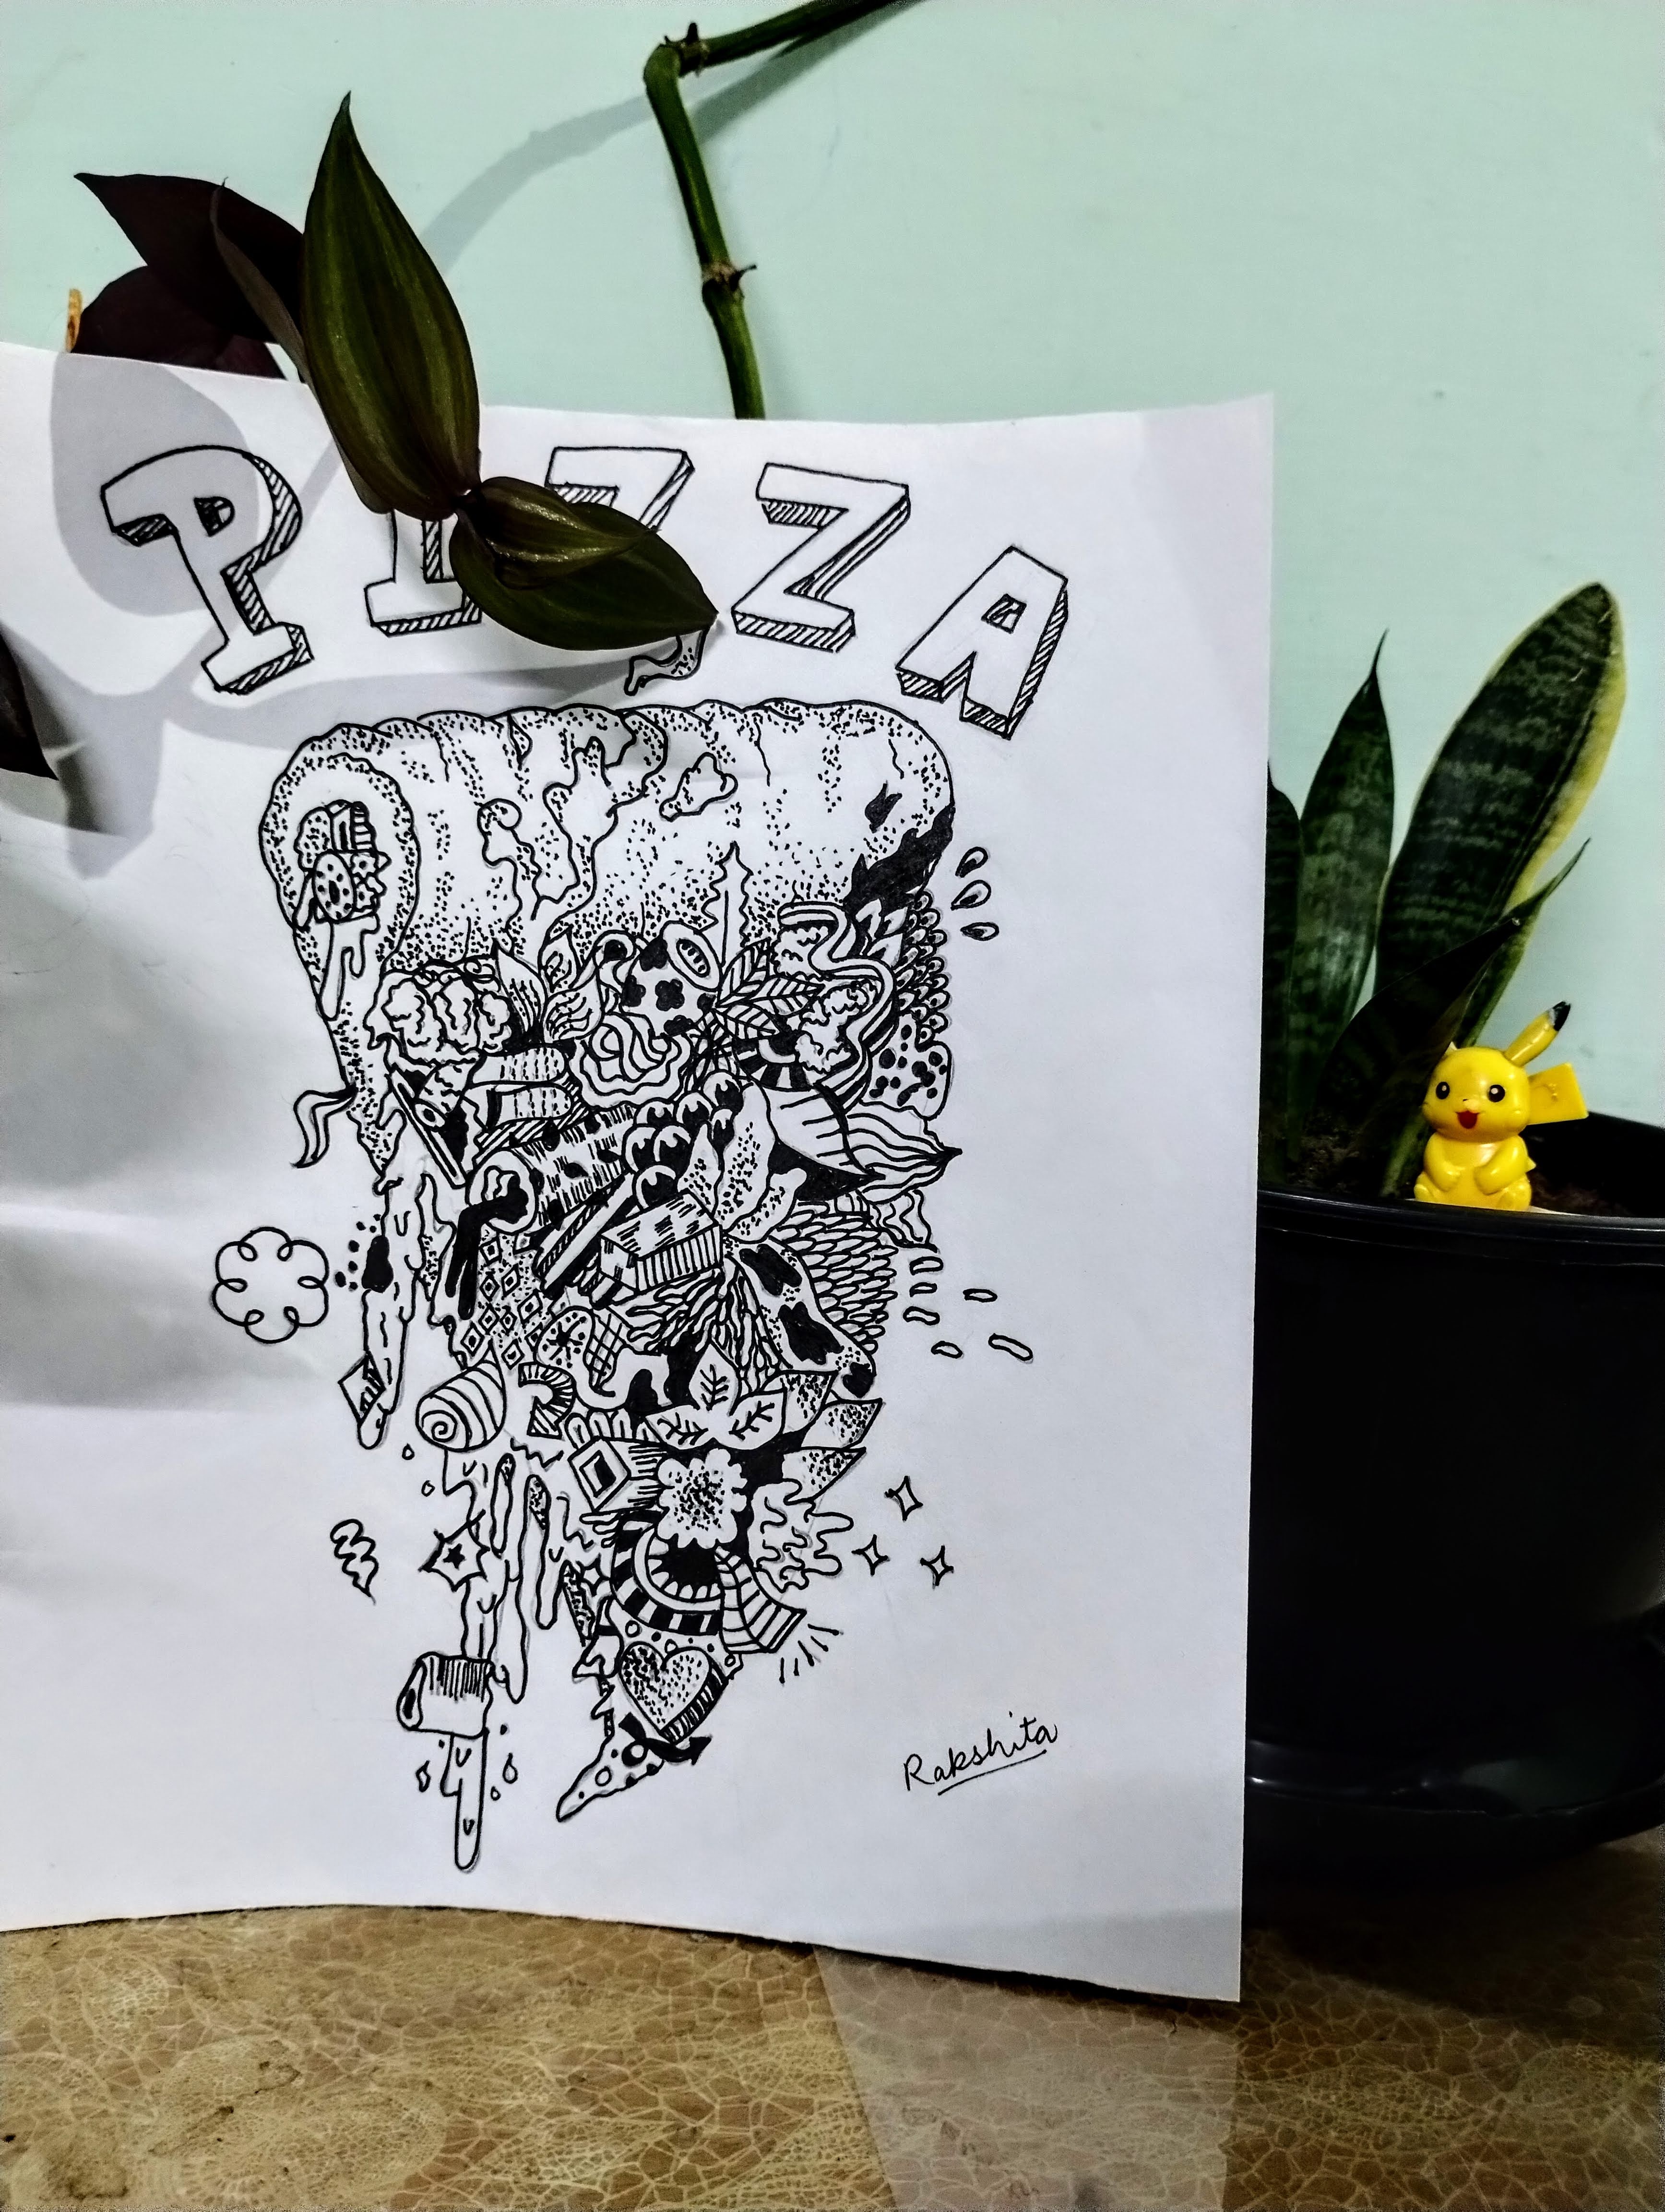 PIZZA
Rakshita